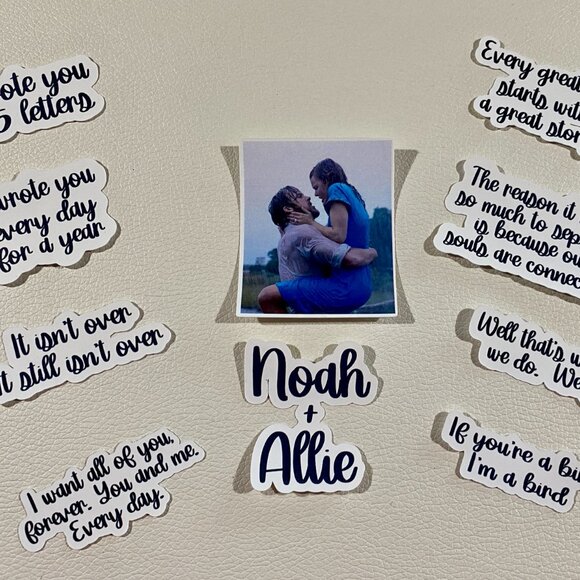 ote you
5 letters
wrote you
every day
for a year
It isn't over
t still isn't over
I want all of you,
forever. You and me.
Every day.
Noah
+
Allie
Every great
starts with
a great stor
The reason it
so much to sep
is because ou
souls are connec
Well that's w
we do. We
If you're a bi
I'm a bird